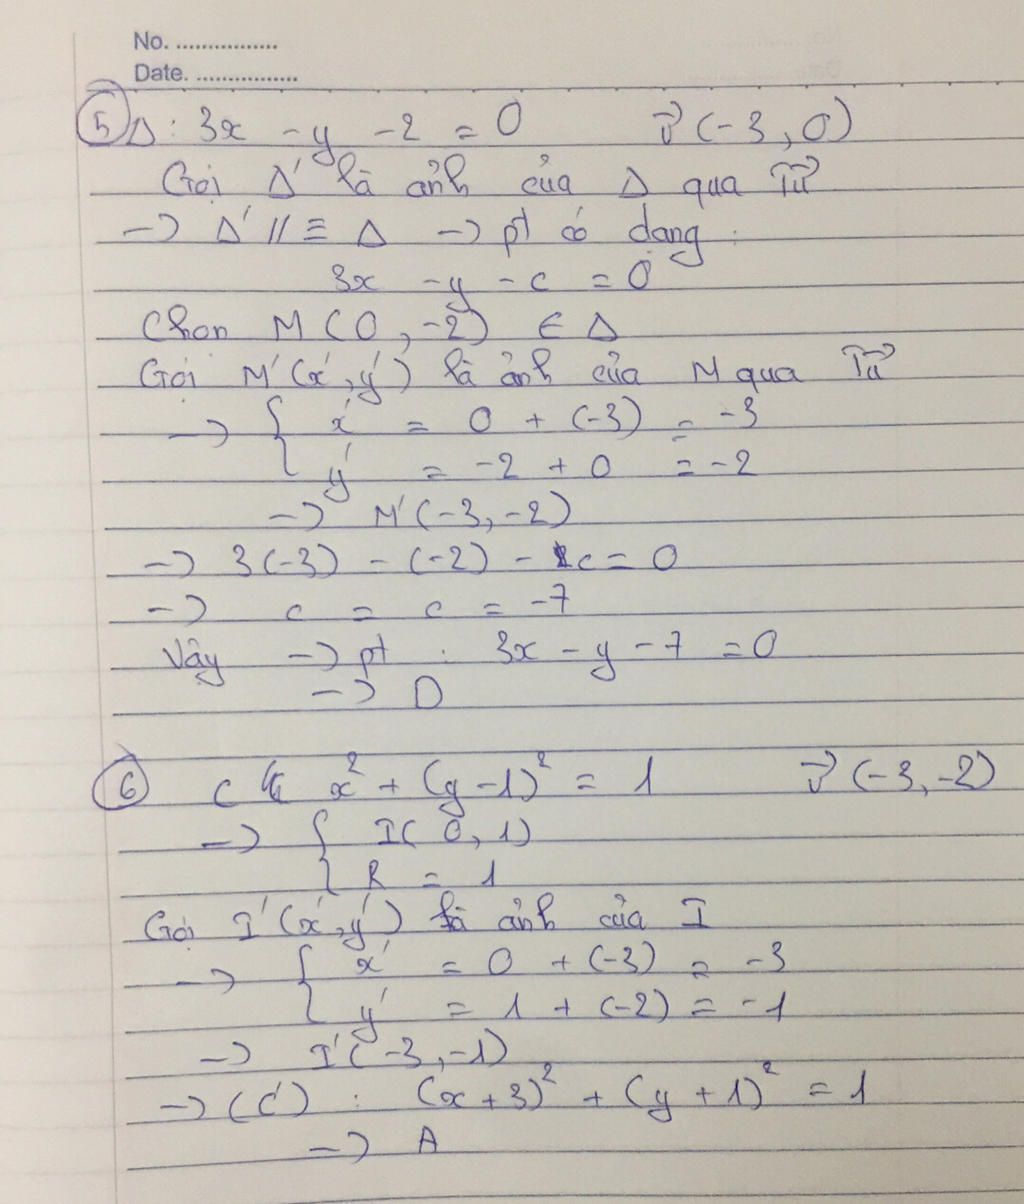 No. ................
Date. ................
⑤ Δ : 3x - y - 2 = 0 v⃗ (-3, 0)
Gọi Δ' là ảnh của Δ qua Tv⃗
-> Δ' // ≡ Δ -> pt có dạng :
3x - y - c = 0
Chọn M (0, -2) ∈ Δ
Gọi M'(x', y') là ảnh của M qua Tv⃗
-> { x' = 0 + (-3) = -3
y' = -2 + 0 = -2
-> M'(-3, -2)
-> 3(-3) - (-2) - c = 0
-> c = c = -7
Vậy -> pt : 3x - y - 7 = 0
-> D
⑥ C x² + (y - 1)² = 1 v⃗ (-3, -2)
-> { I(0, 1)
R = 1
Gọi I'(x', y') là ảnh của I
-> { x' = 0 + (-3) = -3
y' = 1 + (-2) = -1
-> I'(-3, -1)
-> (C') : (x + 3)² + (y + 1)² = 1
-> A